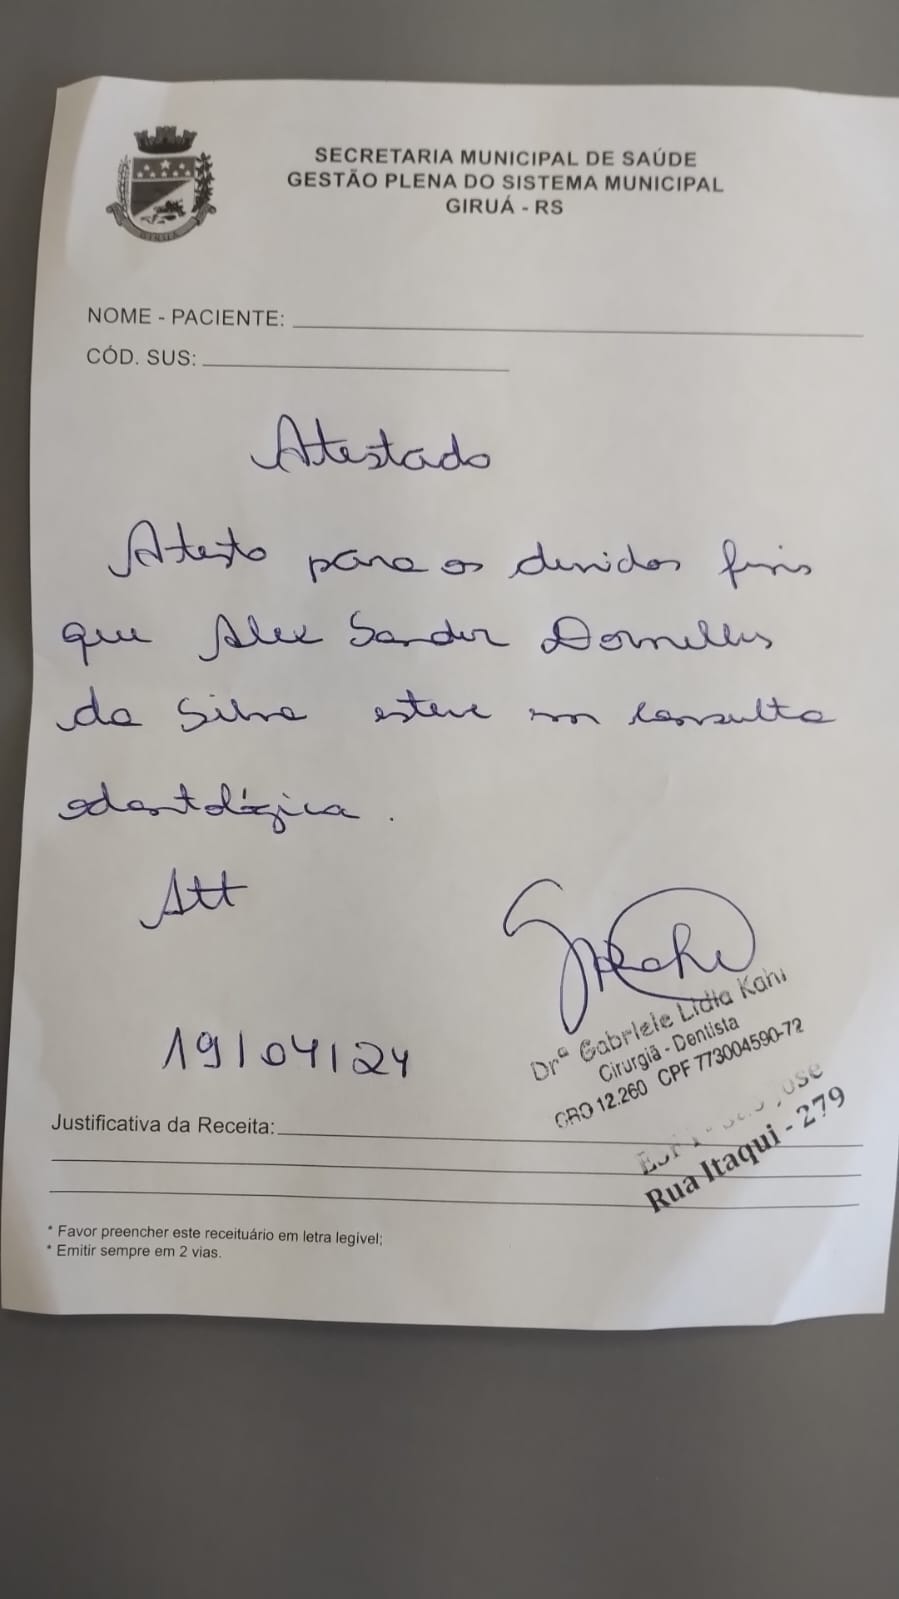 SECRETARIA MUNICIPAL DE SAÚDE
GESTÃO PLENA DO SISTEMA MUNICIPAL
GIRUÁ - RS
NOME - PACIENTE:
CÓD. SUS:
Atestado
Atesto para os devidos fins
que Alex Sander Dornelles
da Silva esteve em consulta
odontológica.
Att
19/04/24
Drª Gabriele Lidia Kahl
Cirurgiã - Dentista
CRO 12.260 CPF 773004590-72
Rua Itaqui - 279
Justificativa da Receita:
* Favor preencher este receituário em letra legível;
* Emitir sempre em 2 vias.